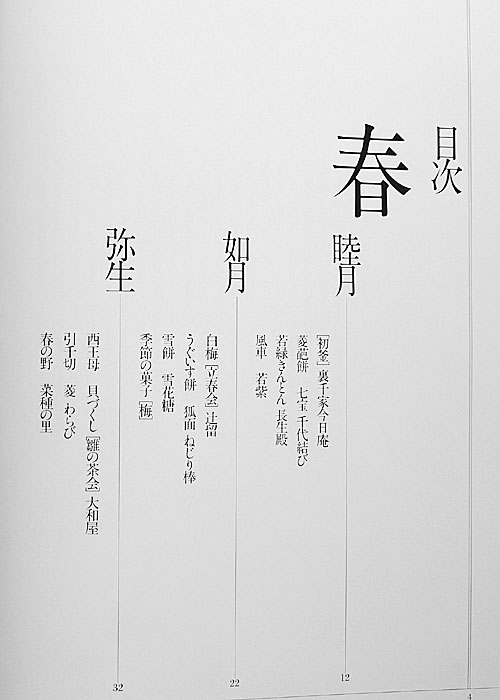 目次
春
睦月
[初釜]裏千家今日庵
菱葩餅 七宝 千代結び
若緑きんとん 長生殿
風車 若紫
12
如月
白梅[立春会]辻留
うぐいす餅 狐面 ねじり棒
雪餅 雪花糖
季節の菓子[梅]
22
弥生
西王母 貝づくし[雛の茶会]大和屋
引千切 菱 わらび
春の野 菜種の里
32
4